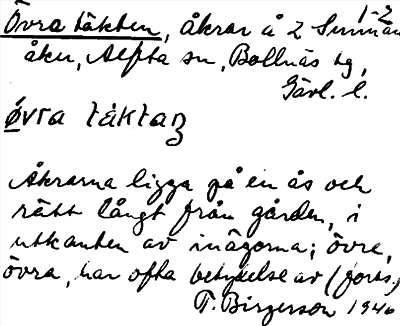 1-2
Övra täkten, åkrar å 2 Sunnan
åker, Alfta sn, Bollnäs tg,
Gävl. l.
övra täktaŋ
Åkrarna ligga på en ås och
rätt långt från gården, i
utkanten av inägorna; övre,
övra, har ofta betydelse av (forts.)
T. Birgerson 1946